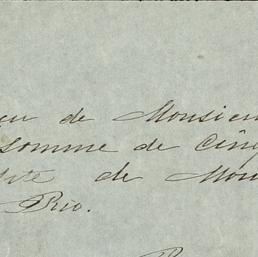 eu de Monsieu
somme de Cinq
pte de Mon
Rio.